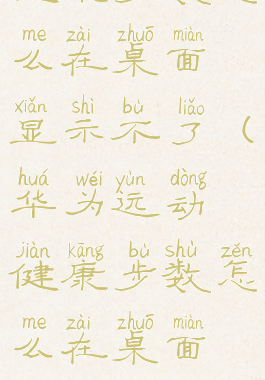 me zài zhuō miàn
么在桌面
xiǎn shì bù liǎo
显示不了（
huá wéi yùn dòng
华为运动
jiàn kāng bù shù zěn
健康步数怎
me zài zhuō miàn
么在桌面